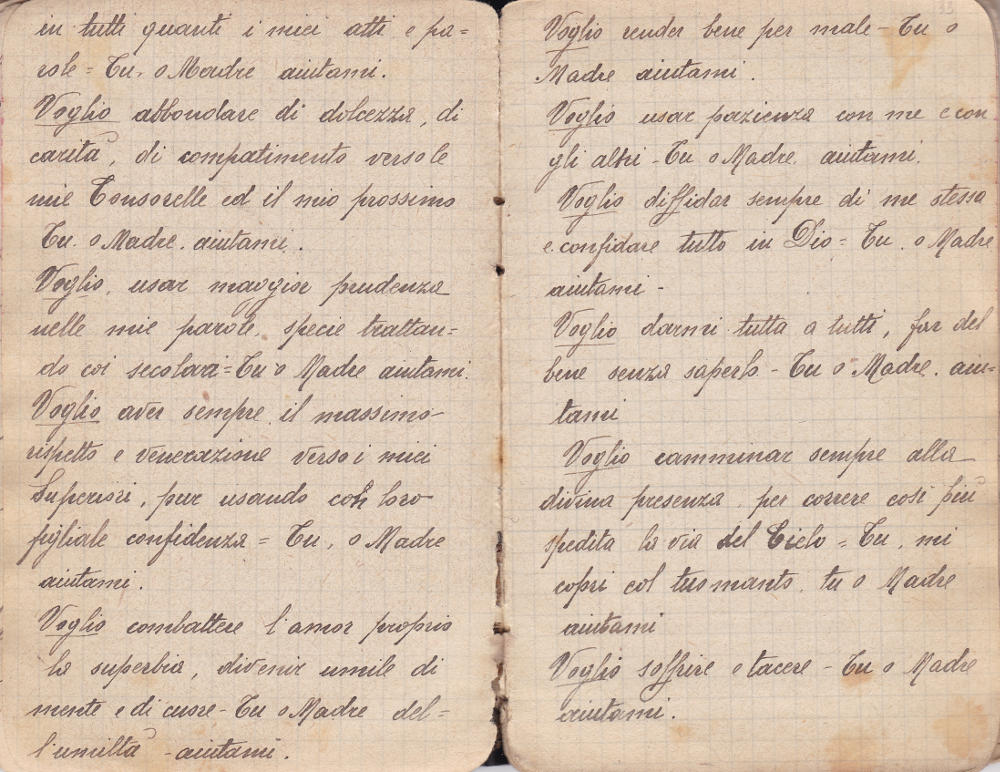 in tutti quanti i miei atti e pa=
role = Tu, o Madre aiutami.
Voglio abbondare di dolcezza, di
carità, di compatimento verso le
mie Consorelle ed il mio prossimo
Tu. o Madre. aiutami.
Voglio, usar maggior prudenza
nelle mie parole, specie trattan=
do coi secolari = Tu o Madre aiutami.
Voglio aver sempre il massimo
rispetto e venerazione verso i miei
Superiori, pur usando con loro
figliale confidenza = Tu, o Madre
aiutami.
Voglio combattere l'amor proprio
la superbia, divenir umile di
mente e di cuore - Tu o Madre del=
l'umiltà - aiutami.
Voglio render bene per male - Tu o
Madre aiutami.
Voglio usar pazienza con me e con
gli altri - Tu o Madre. aiutami.
Voglio diffidar sempre di me stessa
e confidare tutto in Dio = Tu. o Madre
aiutami -
Voglio darmi tutta a tutti, far del
bene senza saperlo - Tu o Madre. aiu=
tami
Voglio camminar sempre alla
divina presenza, per correre così più
spedita la via del Cielo = Tu, mi
copri col tuo manto, tu o Madre
aiutami
Voglio soffrire e tacere - Tu o Madre
aiutami.